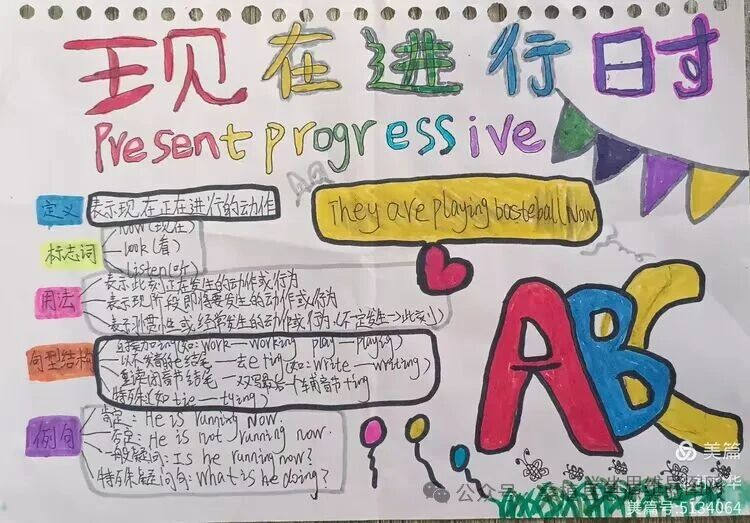 现在进行时
Present progressive
定义
表示现在正在进行的动作
They are playing basteball Now
标志词
now(现在)
look(看)
Listen(听)
用法
表示此刻正在发生的动作或行为
表示现阶段即将要发生的动作或行为
表示习惯性或经常发生的动作或行为(不一定发生→此刻)
句型结构
直接加ing(如:work—working play—playing)
以不发音的e结尾—去e+ing(如:write—writing)
重读闭音节结尾—双写最后一个辅音节+ing
特殊(如tie—tying)
例句
肯定:He is running Now.
否定:He is not running now.
一般疑问:Is he running now?
特殊疑问句:What is he doing?
ABC
美篇
公众号
美篇号:5134064